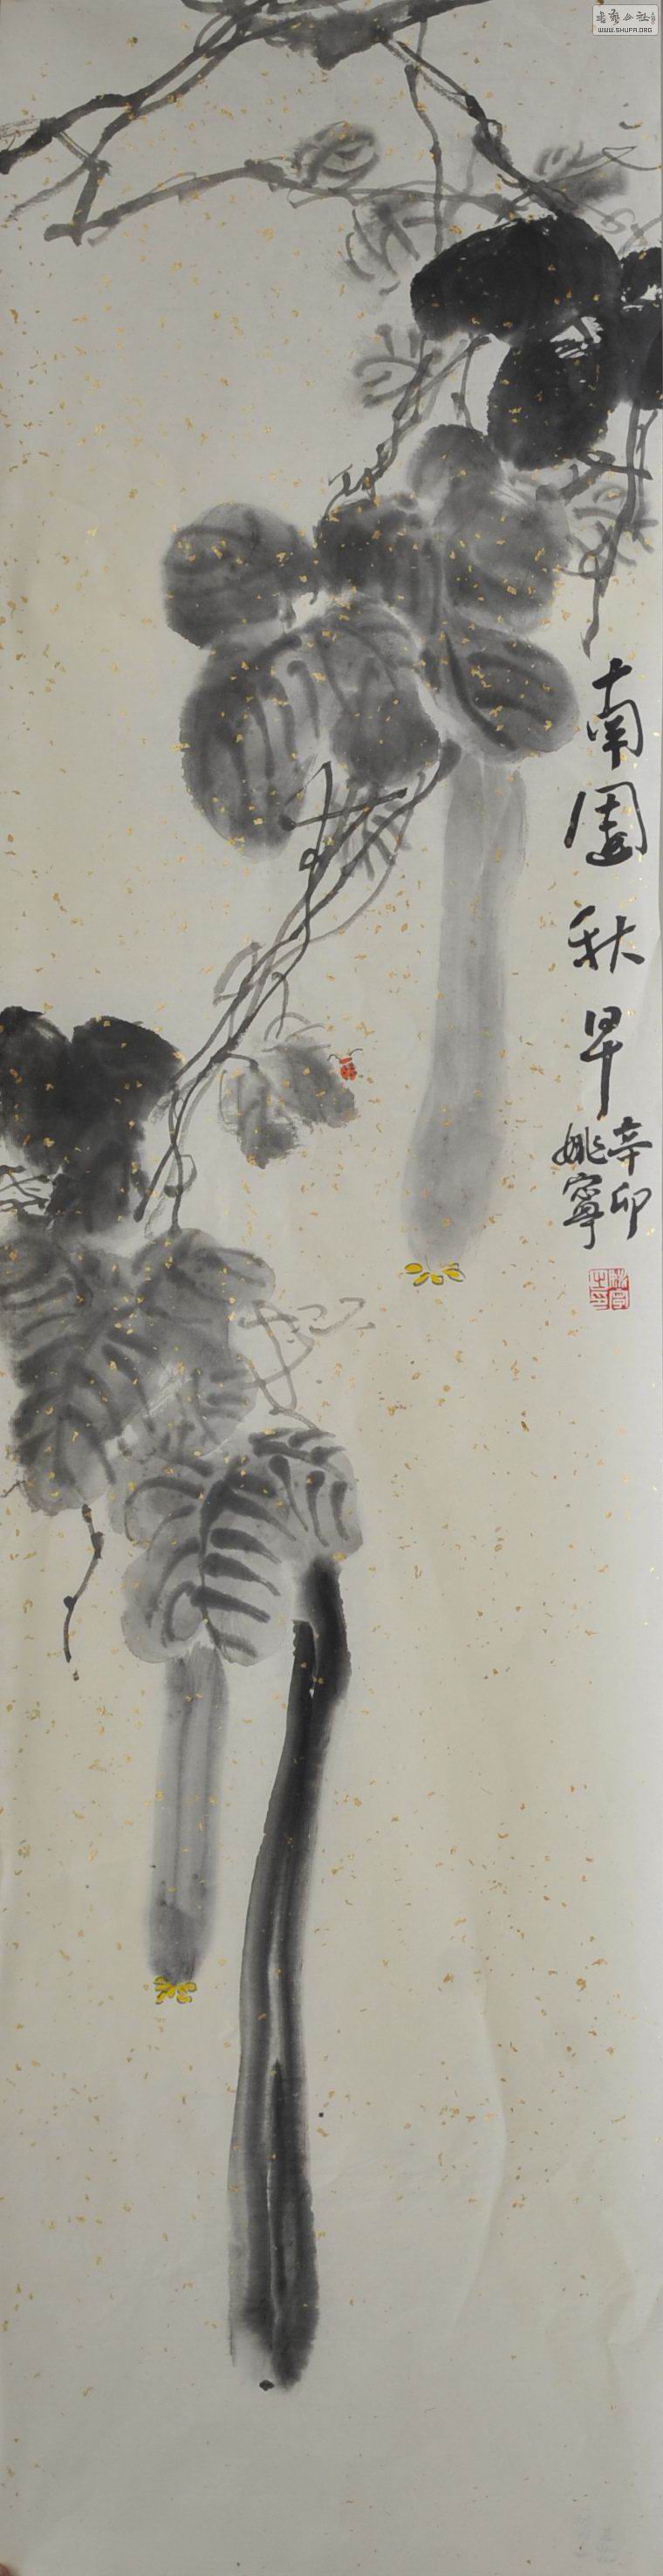 书艺公社
WWW.SHUFA.ORG
南園秋早
辛卯
姚寧